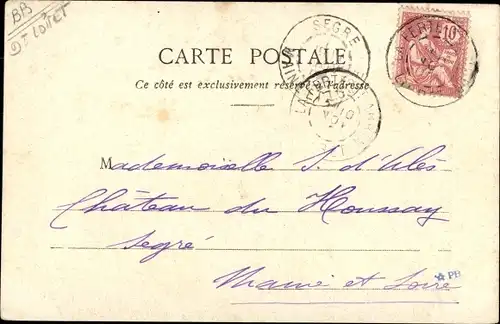 BB
Dt Loiret
SEGRE
10
CARTE POSTALE
Ce côté est exclusivement réservé à l'adresse
Mademoiselle S. d'Alès
Château du Houssay
Segré
Maine et Loire
PB